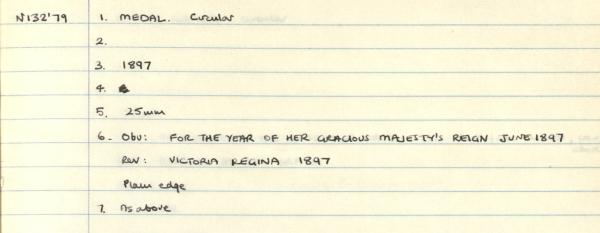 N132'79 1. MEDAL. Circular
2.
3. 1897
4.
5. 25mm
6. Obv: FOR THE YEAR OF HER GRACIOUS MAJESTY'S REIGN JUNE 1897
Rev: VICTORIA REGINA 1897
Plain edge
7. As above